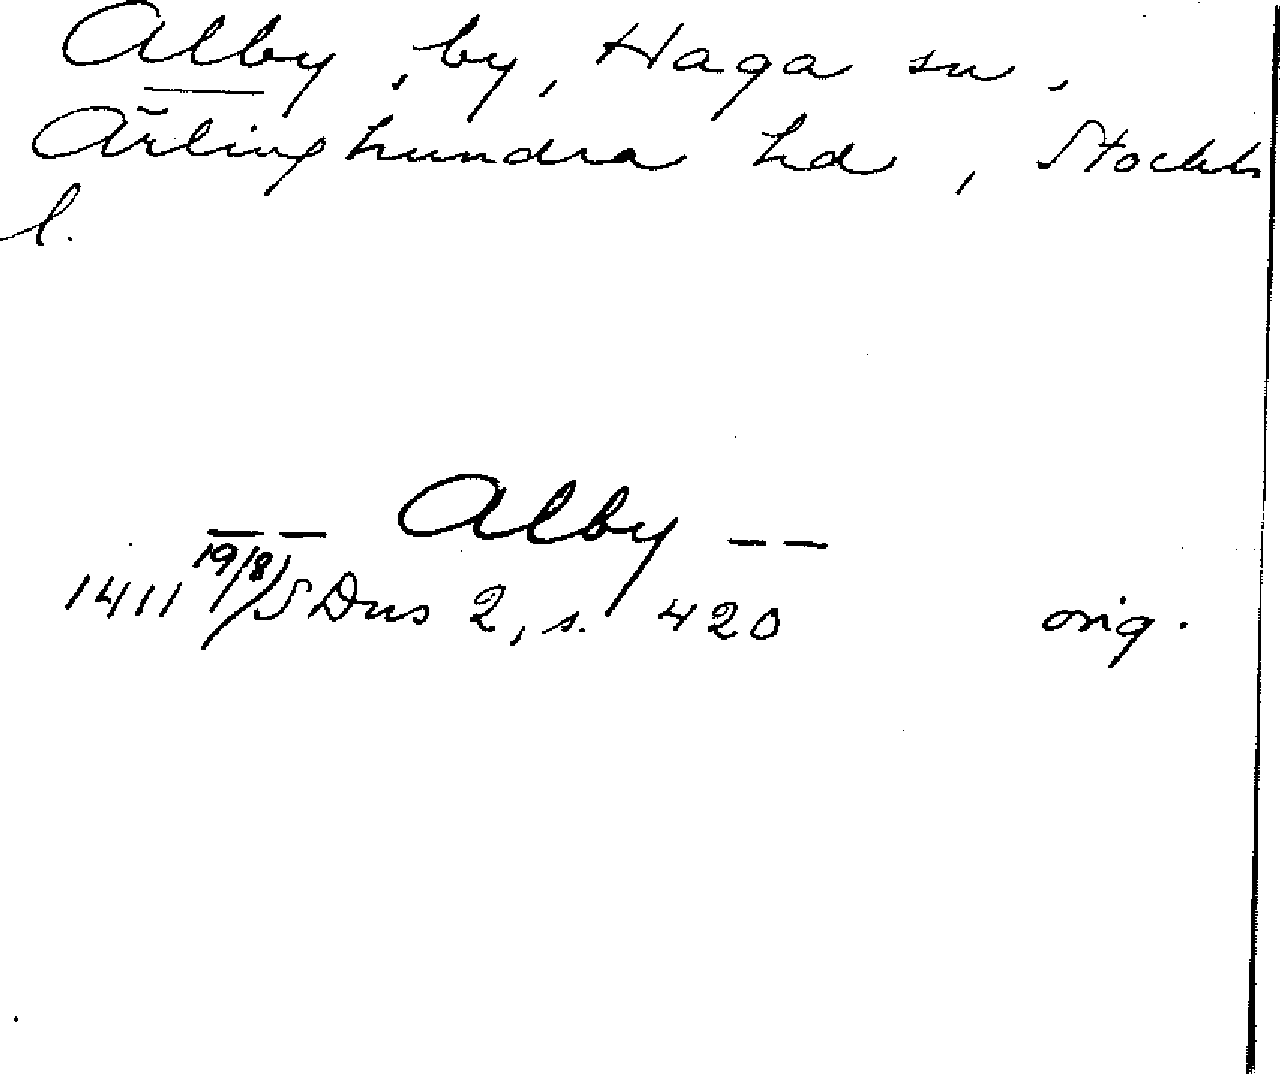 Alby, by, Haga sn,
Ärlinghundra hd, Stockh
l.
-- Alby --
1411 19/8 SDns 2, s. 420 orig.